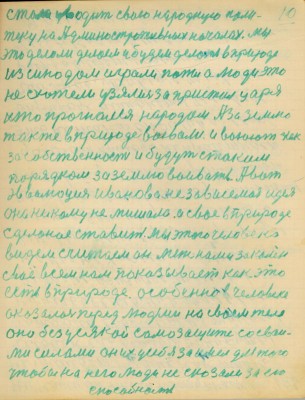 10
стала вводить свою народную поли-
тику на Административных началах. мы
это делом делаем и будем делать в природе
из под дом играли пока а люди это
не схотели взялися за престол царя
кто прогнался народом А за землю
также в природе воевали и воюют как
за собственность и будут с таким
порядком за землю воевать. А вот
Эволюция Иванова независемая идея
она никому не мешала а свое в природе
сделоное ставит. мы этого человека
видем считаем он меж нами закон
свое всем нам показывает как это
есть в природе. особеннов человека
оказалас перед людми на своем теле
она без всякой самозащите со свои-
ми силами они у себя взяли для того
чтобы на него люди не сказали за его
способности